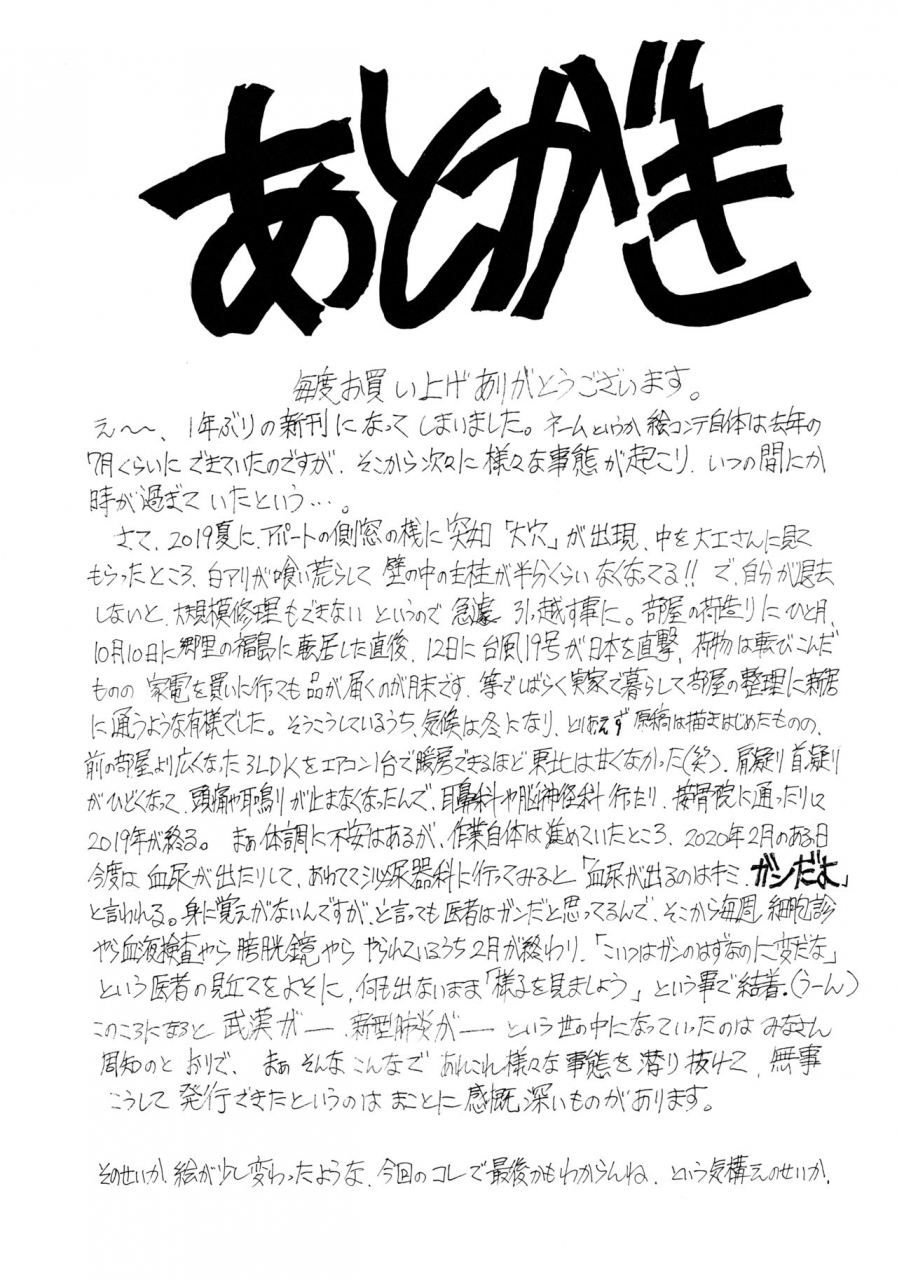 あとがき
毎度お買い上げありがとうございます。
え〜〜、1年ぶりの新刊になってしまいました。ネームというか絵コンテ自体は去年の
7月くらいにできていたのですが、そこから次々に様々な事態が起こり、いつの間にか
時が過ぎていたという…。
さて、2019夏に、アパートの側窓の桟に突如「大穴」が出現、中を大工さんに見て
もらったところ、白アリが喰い荒らして壁の中の主柱が半分くらいなくなってる!!で、自分が退去
しないと、大規模修理もできないというので急遽引っ越す事に。部屋の荷造りにひと月、
10月10日に郷里の福島に転居した直後、12日に台風19号が日本を直撃、荷物は転びこんだ
ものの家電を買いに行っても品が届くのが月末です、等でしばらく実家で暮らして部屋の整理に新居
に通うような有様でした。そうこうしているうち、気候は冬になり、とりあえず原稿は描きはじめたものの、
前の部屋より広くなった3LDKをエアコン1台で暖房できるほど東北は甘くなかった(笑)、肩凝り首凝り
がひどくなって、頭痛や耳鳴りが止まなくなったんで、耳鼻科や脳神経科行ったり、接骨院に通ったりして
2019年が終る。まぁ体調に不安はあるが、作業自体は進めていたところ、2020年2月のある日
今度は血尿が出たりして、あわてて泌尿器科に行ってみると「血尿が出るのはキミ、ガンだよ」
と言われる。身に覚えがないんですが、と言っても医者はガンだと思ってるんで、そこから毎週細胞診
やら血液検査やら膀胱鏡やらやられているうち2月が終わり、「こいつはガンのはずなのに変だな」
という医者の見立てをよそに、何も出ないまま「様子を見ましょう」という事で結着。(うーん)
このころになると武漢が──新型肺炎が──という世の中になっていったのはみなさん
周知のとおりで、まぁそんなこんなであれこれ様々な事態を潜り抜けて、無事
こうして発行できたというのはまことに感慨深いものがあります。
そのせいか絵が少し変わったような、今回のコレで最後かもわからんね、という気構えのせいか、